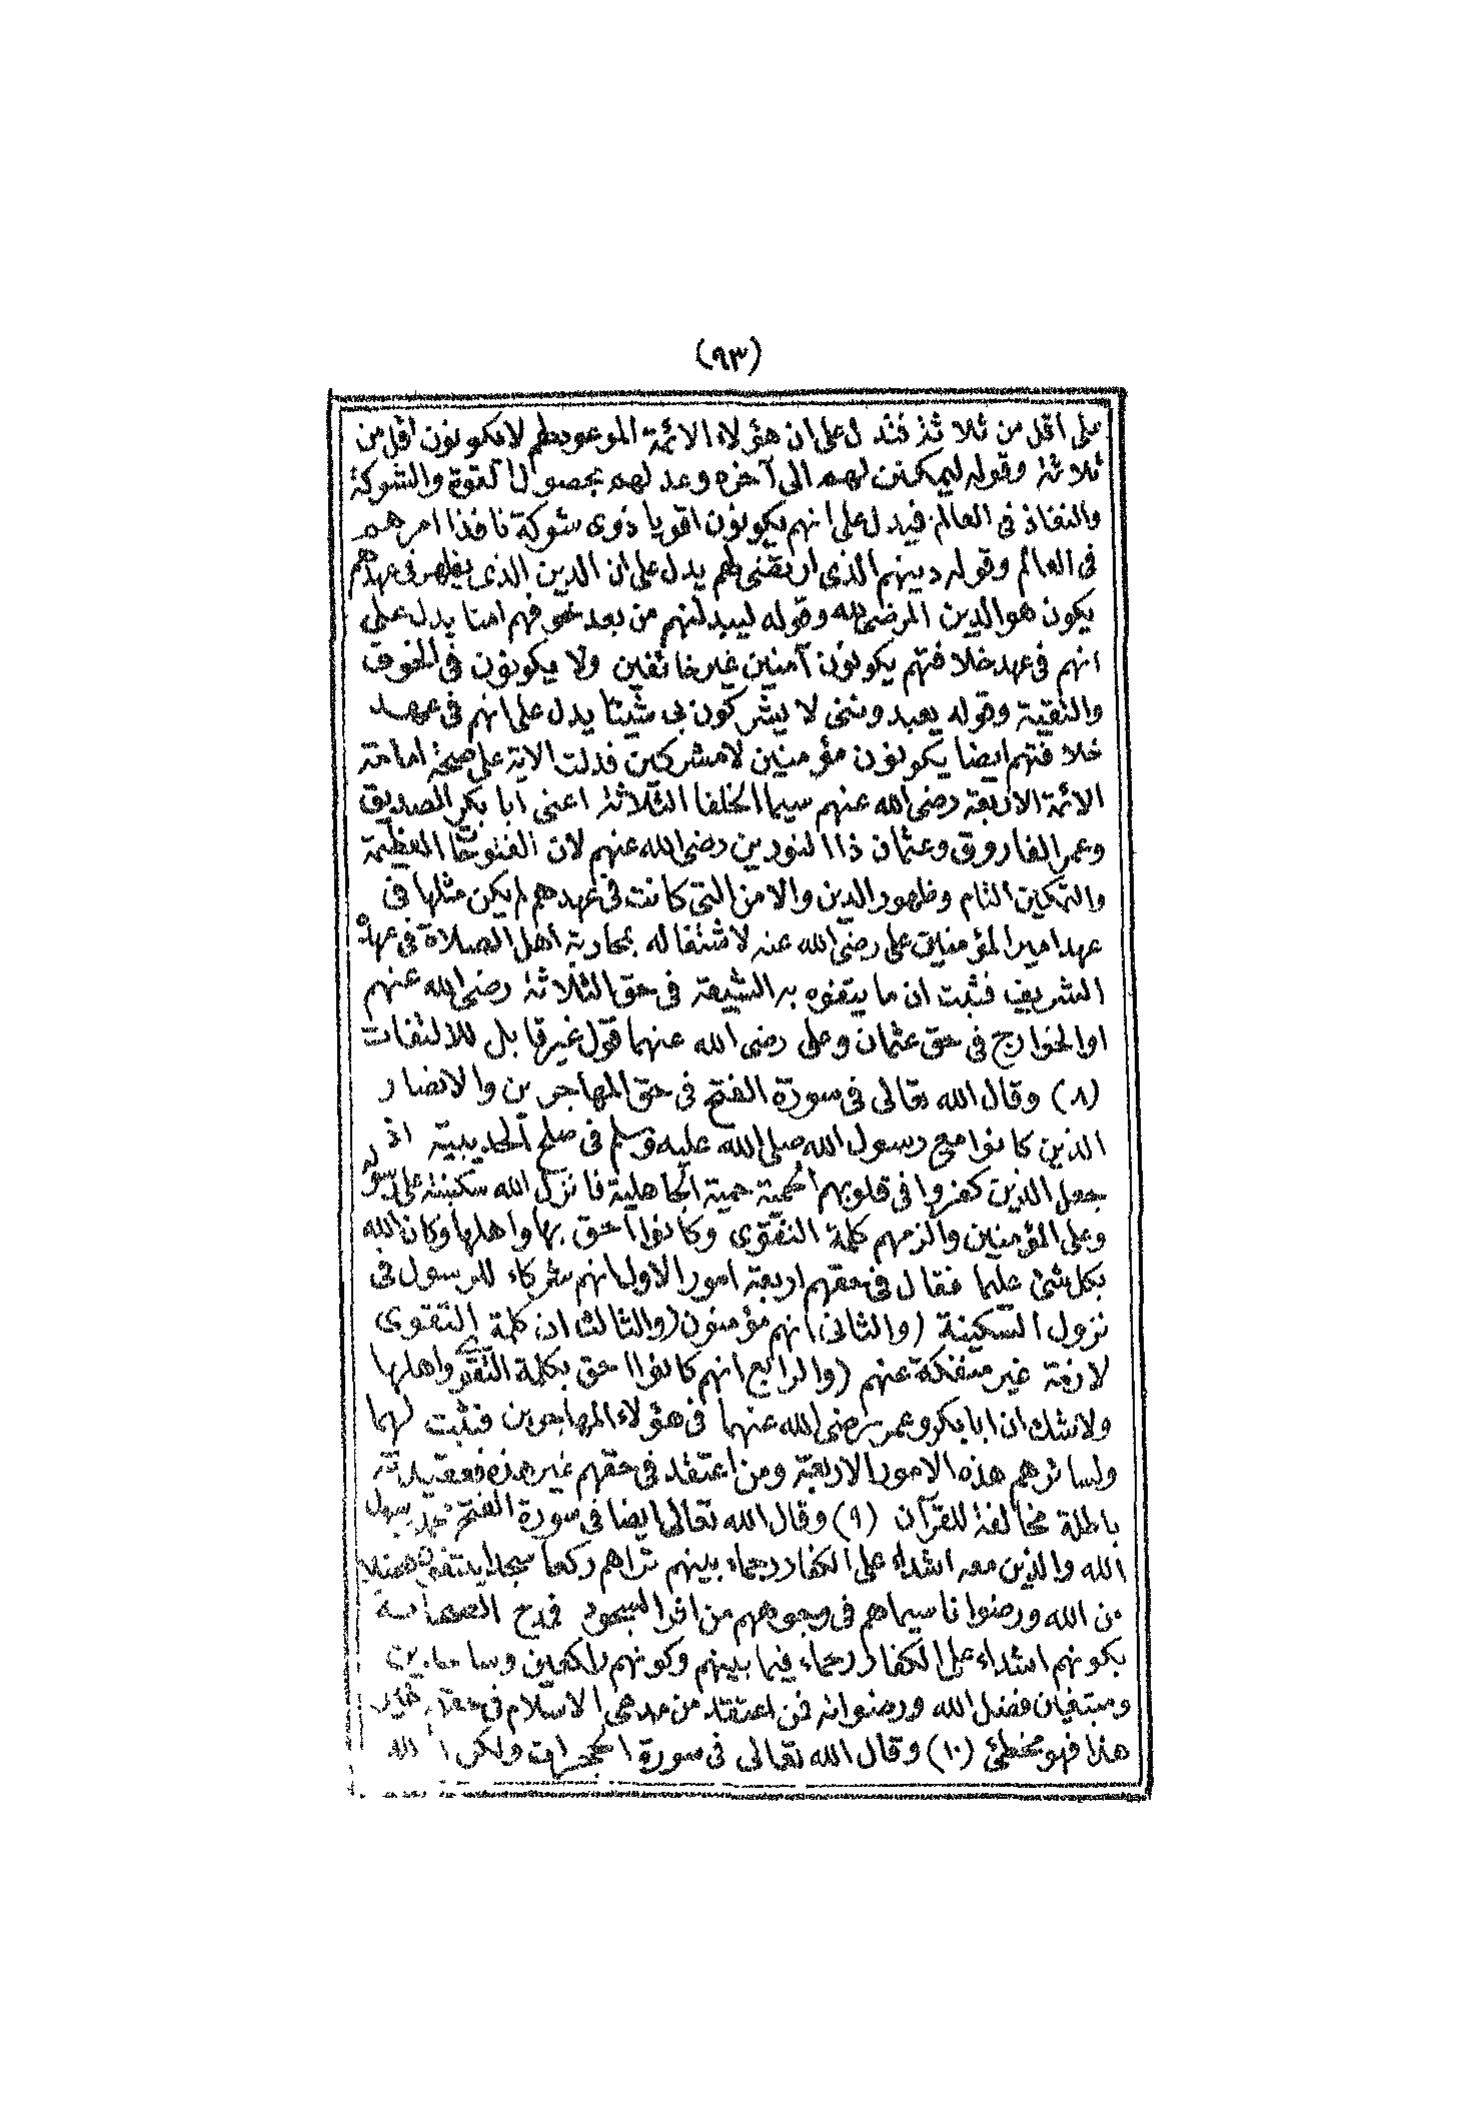 (٩٣)
على اقل من ثلاثة فتدل على ان هؤلاء الائمة الموعود لهم لا يكونون اقل من
ثلاثة وقوله ليمكنن لهم الى آخره وعد لهم بحصول القوة والشوكة
والنفاذ فى العالم فيدل على انهم يكونون اقويا ذوى شوكة نافذا امرهم
فى العالم وقوله دينهم الذى ارتضى لهم يدل على ان الدين الذى يظهر فى عهدهم
يكون هو الدين المرضى لله وقوله ليبدلنهم من بعد خوفهم امنا يدل على
انهم فى عهد خلافتهم يكونون آمنين غير خائفين ولا يكونون فى الخوف
والتقية وقوله يعبدوننى لا يشركون بى شيئا يدل على انهم فى عهد
خلافتهم ايضا يكونون مؤمنين لا مشركين فدلت الاية على صحة امامة
الائمة الاربعة رضى الله عنهم سيما الخلفا الثلاثة اعنى ابا بكر الصديق
وعمر الفاروق وعثمان ذا النورين رضى الله عنهم لان الفتوحات العظيمة
والتمكين التام وظهور الدين والامن التى كانت فى عهدهم لم يكن مثلها فى
عهد امير المؤمنين على رضى الله عنه لاشتغاله بمحاربة اهل الصلاة فى عهده
الشريف فثبت ان ما يتفوه به الشيعة فى حق الثلاثة رضى الله عنهم
او الخوارج فى حق عثمان وعلى رضى الله عنهما قول غير قابل للالتفات
(٨) وقال الله تعالى فى سورة الفتح فى حق المهاجرين والانصار
الذين كانوا مع رسول الله صلى الله عليه وسلم فى صلح الحديبية اذ
جعل الذين كفروا فى قلوبهم الحمية حمية الجاهلية فانزل الله سكينته على رسوله
وعلى المؤمنين والزمهم كلمة التقوى وكانوا احق بها واهلها وكان الله
بكل شئ عليما فقال فى حقهم اربعة امور الاول انهم شركاء للرسول فى
نزول السكينة (والثانى) انهم مؤمنون (والثالث) ان كلمة التقوى
لازمة غير منفكة عنهم (والرابع) انهم كانوا احق بكلمة التقوى واهلها
ولا شك ان ابا بكر وعمر رضى الله عنهما فى هؤلاء المهاجرين فثبت لهما
ولسائرهم هذه الامور الاربعة ومن اعتقد فى حقهم غير هذه فعقيدته
باطلة مخالفة للقرآن (٩) وقال الله تعالى ايضا فى سورة الفتح محمد رسول
الله والذين معه اشداء على الكفار رحماء بينهم تراهم ركعا سجدا يبتغون فضلا
من الله ورضوانا سيماهم فى وجوههم من اثر السجود فمدح الصحابة
بكونهم اشداء على الكفار رحماء فيما بينهم وكونهم راكعين وساجدين
ومبتغيان فضل الله ورضوانه فمن اعتقد من مدعى الاسلام فى حقهم غير
هذا فهو مخطئ (١٠) وقال الله تعالى فى سورة الحجرات ولكن الله